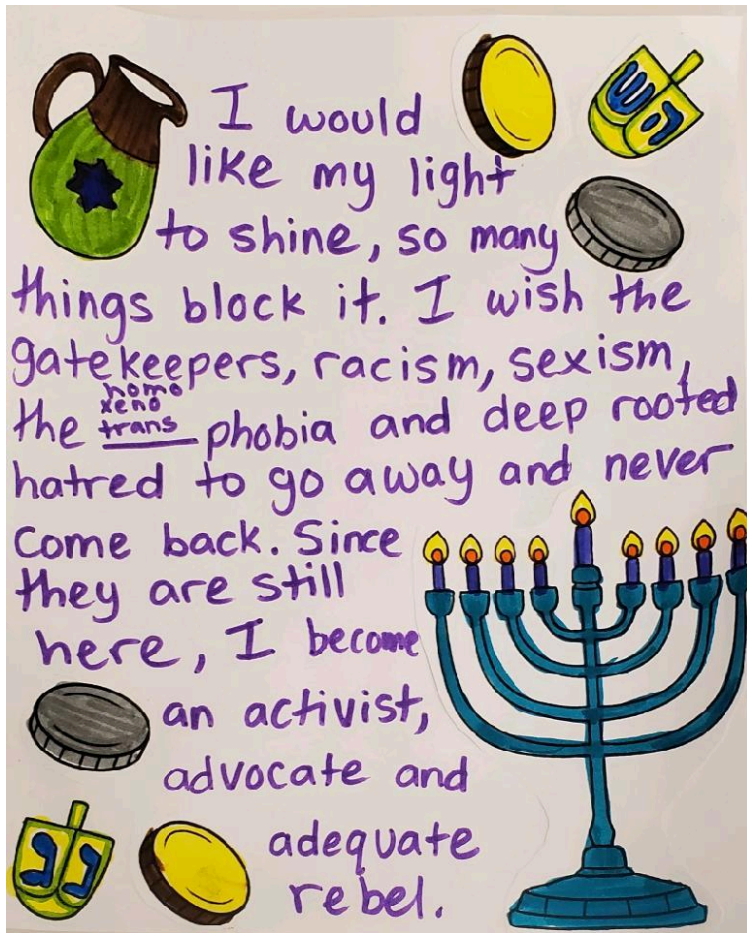 ש ה
I would
like my light
to shine, so many
things block it. I wish the
gatekeepers, racism, sexism,
the homo xeno trans phobia and deep rooted
hatred to go away and never
come back. Since
they are still
here, I become
an activist,
advocate and
adequate
rebel.
נ ג